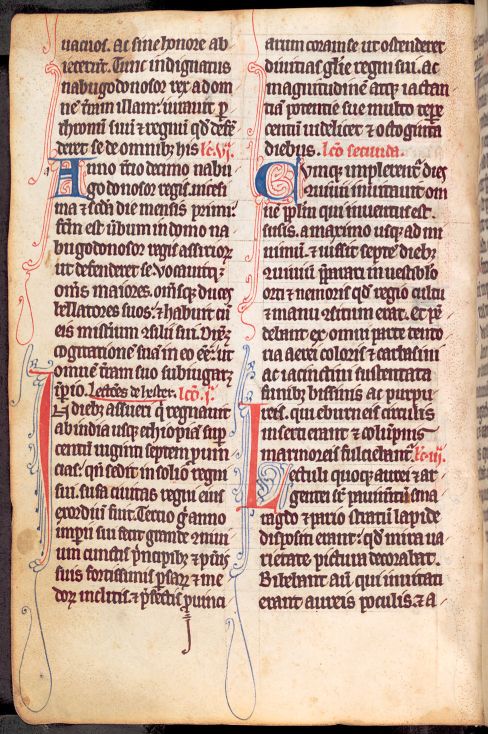 uacuos. Ac sine honore ab
iecerūt. Tunc indignatus
nabugodonosor rex ad om
nē t̄ram illam. iurauit ꝑ
thronū suū ⁊ regnū qđ defē
deret se de omnibȝ his lc̄. vj.
Anno t̄cio decimo nabu
godonosor regis. uicesi
ma ⁊ sc̄da die mensis primi.
fc̄m est ūbum in domo na
bugodonosor regis assirior
ut defenderet se. Vocauitqȝ
om̄s maiores. om̄sqȝ duces
bellatores suos. ⁊ habuit cū
eis misteriū ꝯsilii sui. Dixitqȝ
cogitationē suā in eo eē. ut
omnē t̄ram suo subiugaret
īꝑio. Lectōes de hester. lc̄o. j.
In diebȝ assueri qͥ regnauit
ab india usqȝ ethiopiā suꝑ
centū uiginti septem ꝓuin
cias. qn̄ sedit in solio regni
sui. susa ciuitas regni eius
exordiū fuit. Tercio g̊ anno
imꝑii sui fecit grande ꝯuiui
um cunctis pͥncipibȝ ⁊ pūis
suis fortissimis ꝑsarȝ ⁊ me
dorȝ inclitis. ⁊ p̄fectis ꝓuinci
arum coram se ut ostenderet
diuitias gl̄ie regni sui. ac
magnitudinē atqȝ iactan
tiā potentie sue multo tēpr̄e
centū uidelicet ⁊ octoginta
diebus. lc̄o secunda.
Cumqȝ implerent̄ dies
ꝯuiuii inuitauit om
nē pl̄m qui inuentus est
susis. a maximo usqȝ ad mi
nimū. ⁊ iussit septē diebȝ
ꝯuiuiū p̄parari in uestibl̄o
orti ⁊ nemoris qđ regio cultu
⁊ manu ꝯsitum erat. Et pē
debant ex omni parte tento
ria aerei coloris ⁊ carbasini
ac iacinctini sustentata
funibȝ bissinis ac purpu
reis. qui eburneis circulis
inserti erant ⁊ colūpnis
marmoreis fulciebant̄. lc̄. iij.
Lectuli quoqȝ aurei ⁊ ar
gentei sr̄ pauimētū sma
ragdo ⁊ pario stratū lapide
dispositi erant. qđ mira ua
rietate pictura decorabat.
Bibebant aūt qui inuitati
erant aureis poculis. ⁊ a